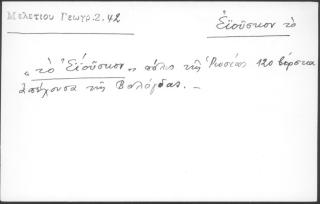 Μελετίου Γεωγρ.2.42
Ἐϊοῦσκον τὸ
"τὸ Ἐϊοῦσκον" πόλις τῆς Ῥωσίας 120 βέρστια
ἀπέχουσα τῆς Βολόγδας. –